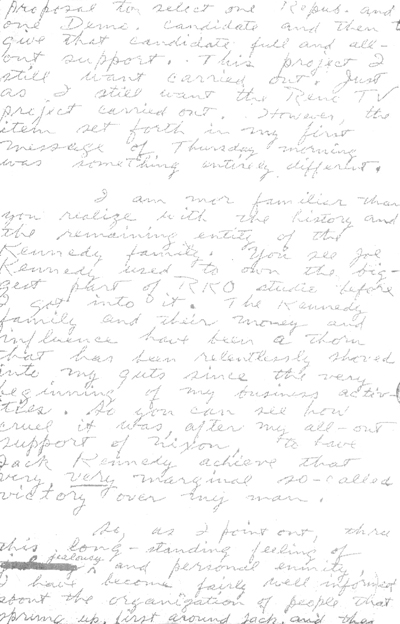 proposal to select one Repub. and
one Demo. candidate and then t
give that candidate full and all-
out support. This project I
still want carried out. Just
as I still want the Reno TV
project carried out. However, the
item set forth in my first
message of Thursday morning
was something entirely different.
I am mor familier than
you realize with the history and
the remaining entity of the
Kennedy family. You see Joe
Kennedy used to own the big-
gest part of RKO studio before
I got into it. The Kennedy
family and their money and
influence have been a thorn
that has been relentlessly shoved
into my guts since the very
beginning of my business activi
ties. So you can see how
cruel it was, after my all-out
support of Nixon, to have
Jack Kennedy achieve that
very, very marginal so-called
victory over my man.
So, as I point out, thru
this long-standing feeling of
jealousy and personal enmity,
I have become fairly well informed
about the organization of people that
sprung up, first around Jack, and then